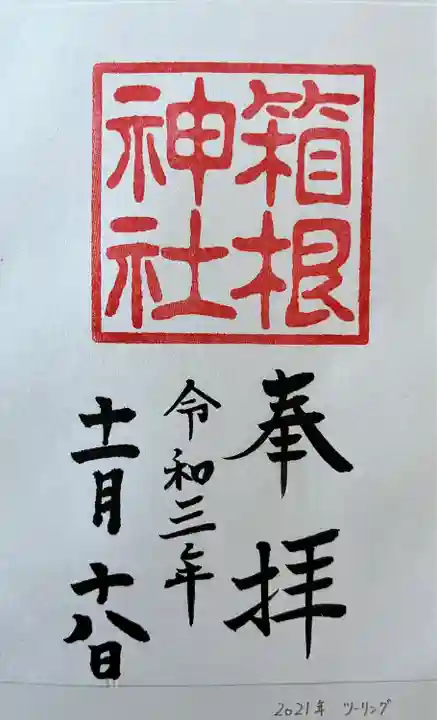 箱根
神社
奉拝
令和三年
十一月十八日
2021年 ツーリング